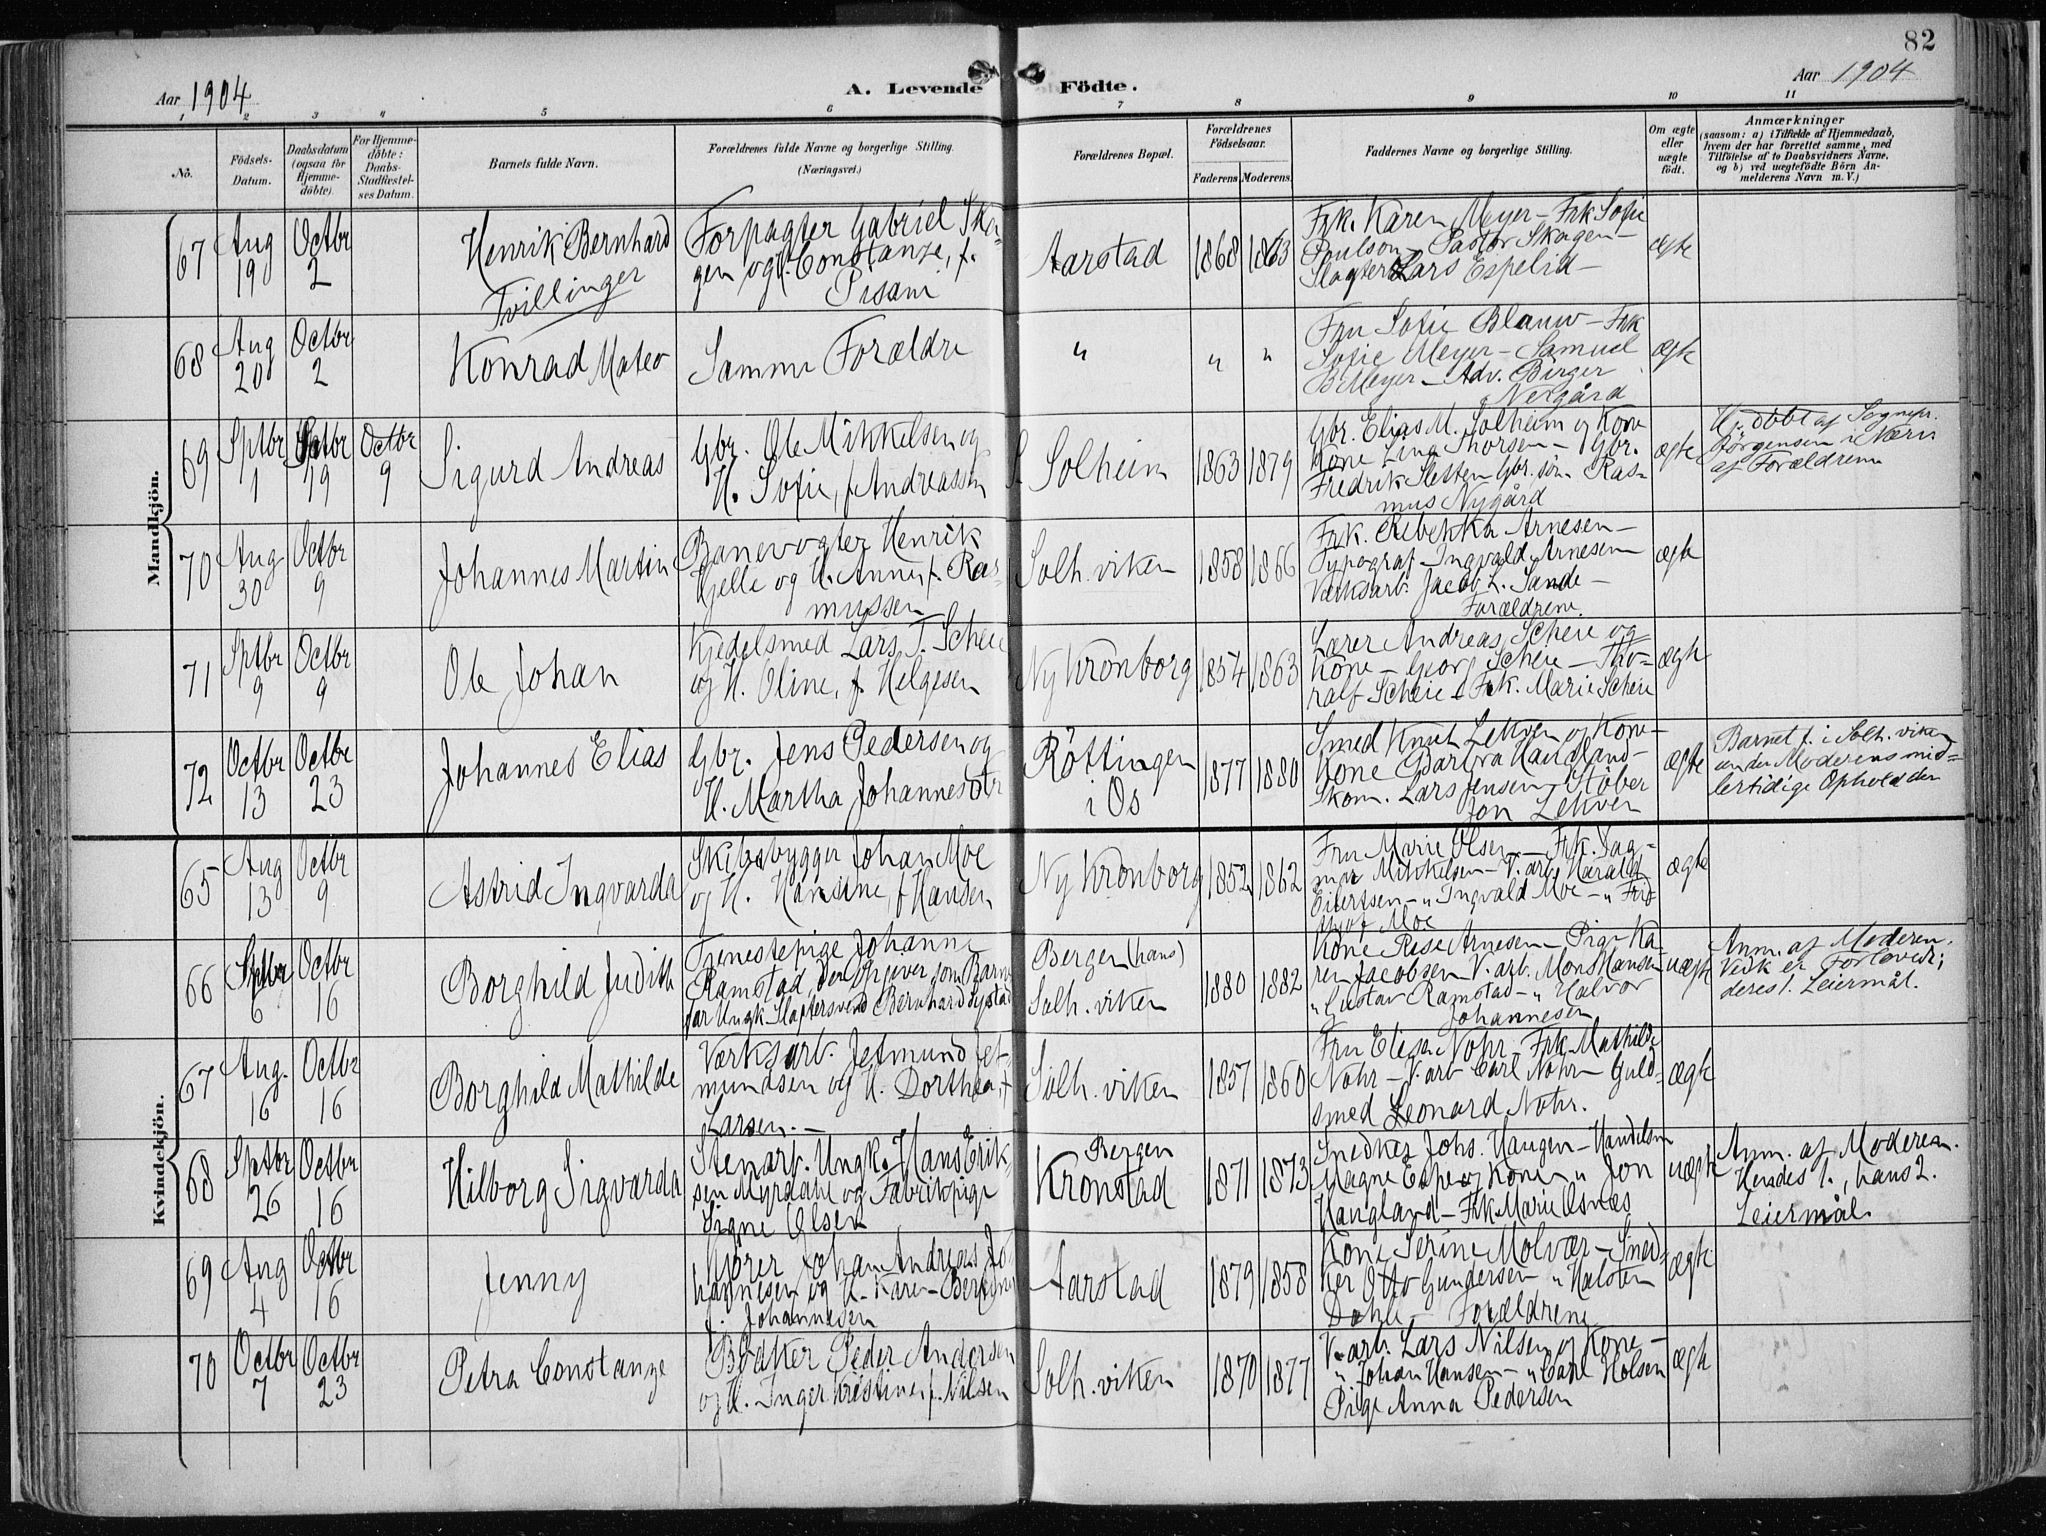 82
Aar 1904
A. Levende Födte.
Aar 1904
1 2 3 4 5 6 7 8 9 10 11
No.
Födsels-
Datum.
Daabsdatum
(ogsaa for
Hjemme-
döbte).
For Hjemme-
döbte:
Daabs-
Stadfæstel-
ses Datum.
Barnets fulde Navn.
Forældrenes fulde Navne og borgerlige Stilling.
(Næringsvei.)
Forældrenes Bopæl.
Forældrenes
Födselsaar.
Faderens. Moderens.
Faddernes Navne og borgerlige Stilling.
Om ægte
eller
uægte
födt.
Anmærkninger
(saasom: a) i Tilfælde af Hjemmedaab,
hvem der har forrettet samme, med
Tilföielse af to Daabsvidners Navne,
og b) ved uægtefödte Börn An-
melderens Navn m. V.)
Mandkjön.
67
Aug
19
Octbr
2
Henrik Bernhard
Tvillinger
Forpagter Gabriel Ska-
gen og H. Constanze, f.
Pisani
Aarstad
1868
1863
Frk. Karen Meyer - Frk Sofie
Poulson - Pastor Skagen -
Slagter Lars Espelid -
ægte
68
Aug
20
Octbr
2
Konrad Mateo
Samme Forældre
"
"
"
Fru Sofie Blauw - Frk
Sofie Meyer - Samuel
B Meyer - Adv. Birger
Nergård
ægte
69
Sptbr
1
Sptbr
19
Octbr
9
Sigurd Andreas
Gbr. Ole Mikkelsen og
H. Sofie, f. Andreassen
S. Solheim
1863
1879
Gbr. Elias M. Solheim og Kone
Kone Lina Thorsen - Gbr.
Fredrik Sletten Gbr. sön Ras-
mus Nygård
ægte
Hj. döbt af Sognepr.
Jörgensen i Nærv
af Forældrene
70
Aug
30
Octbr
9
Johannes Martin
Banevogter Henrik
Hjelle og H. Anne, f. Ras-
mussen
Solh. viken
1858
1866
Frk. Rebekka Arnesen -
Typograf Ingvald Arnesen
Værksarb. Jacob L. Sande -
Forældrene.
ægte
71
Sptbr
9
Octbr
9
Ole Johan
Kjedelsmed Lars T. Scheie
og H. Oline, f. Helgesen
Ny Kronborg
1854
1863
Lærer Andreas Scheie og
Kone - Georg Scheie - Thv-
ralf Scheie - Frk. Marie Scheie
ægte
72
Octbr
13
Octbr
23
Johannes Elias
Gbr. Jens Pedersen og
H. Martha Johannesdtr
Röttingen
i Os
1877
1880
Smed Knut Lekven og Kone -
Kone Barbra Haugland -
Skom. Lars Jensen - Stöber
Jon Lekven
ægte
Barnet f. i Solh. viken
under Moderens mid-
lertidige Ophold der
Kvindekjön.
65
Aug
13
Octbr
9
Astrid Ingvarda
Skibsbygger Johan Moe
og H. Hansine, f Hansen
Ny Kronborg
1852
1862
Fru Marie Olsen - Frk. Dag-
mar Mikkelsen - V. arb. Harald
Eilertsen - " Ingvald Moe - " Frid
thjof Moe
ægte
66
Sptbr
6
Octbr
16
Borghild Judith
Tjenestepige Johanne
Ramstad, der opgiver som Barne-
far Ungk. Slagtersvend Bernhard
Bergen (hans)
Solh. viken
1880
1882
Kone Arnesen - Pige Ka-
ren Jacobsen V. arb. Mons Hansen
" Gustav Ramstad - " Halvor
Johannesen
uægte
Anm. af Moderen.
Vedk er Forlovede;
deres 1. Leiermål.
67
Aug.
16
Octbr
16
Borghild Mathilde
Værksarb. Jetmund Jet-
mundsen og H. Dorthea, f
Larsen. -
Solh. viken
1857
1860
Fru Elisa Nohr - Frk Mathilde
Nohr - V. arb Carl Nohr - Guld-
smed Leonard Nohr.
ægte
68
Sptbr
26
Octbr
16
Hilborg Sigvarda
Stenarb. Ungk. Hans Erik-
sen Myrdahl og Fabrikpige
Signe Olsen
Bergen
Kronstad
1871
1873
Snedker Johs. Haugen - Handelsm
Magne Espe og Kone - " Jon
Haugland - Frk Marie Osnæs
uægte
Anm. af Moderen.
Hendes 1., hans 2.
Leiermål.
69
Aug
4
Octbr
16
Jenny
Kjörer Johan Andreas Jo-
hannesen og H. Karen
f. Johannesen
Aarstad
1879
1858
Kone Serine Molvær - Sned-
ker Otto Gundersen " Halsten
Dahle - Forældrene
ægte
70
Octbr
7
Octbr
23
Petra Constanze
Bödker Peder Andersen
og H. Inger Kristine, f. Nilsen
Solh. viken
1870
1877
V. arb. Lars Nilsen og Kone -
" Johan Hansen - " Carl Holsen
Pige Anna Pedersen
ægte